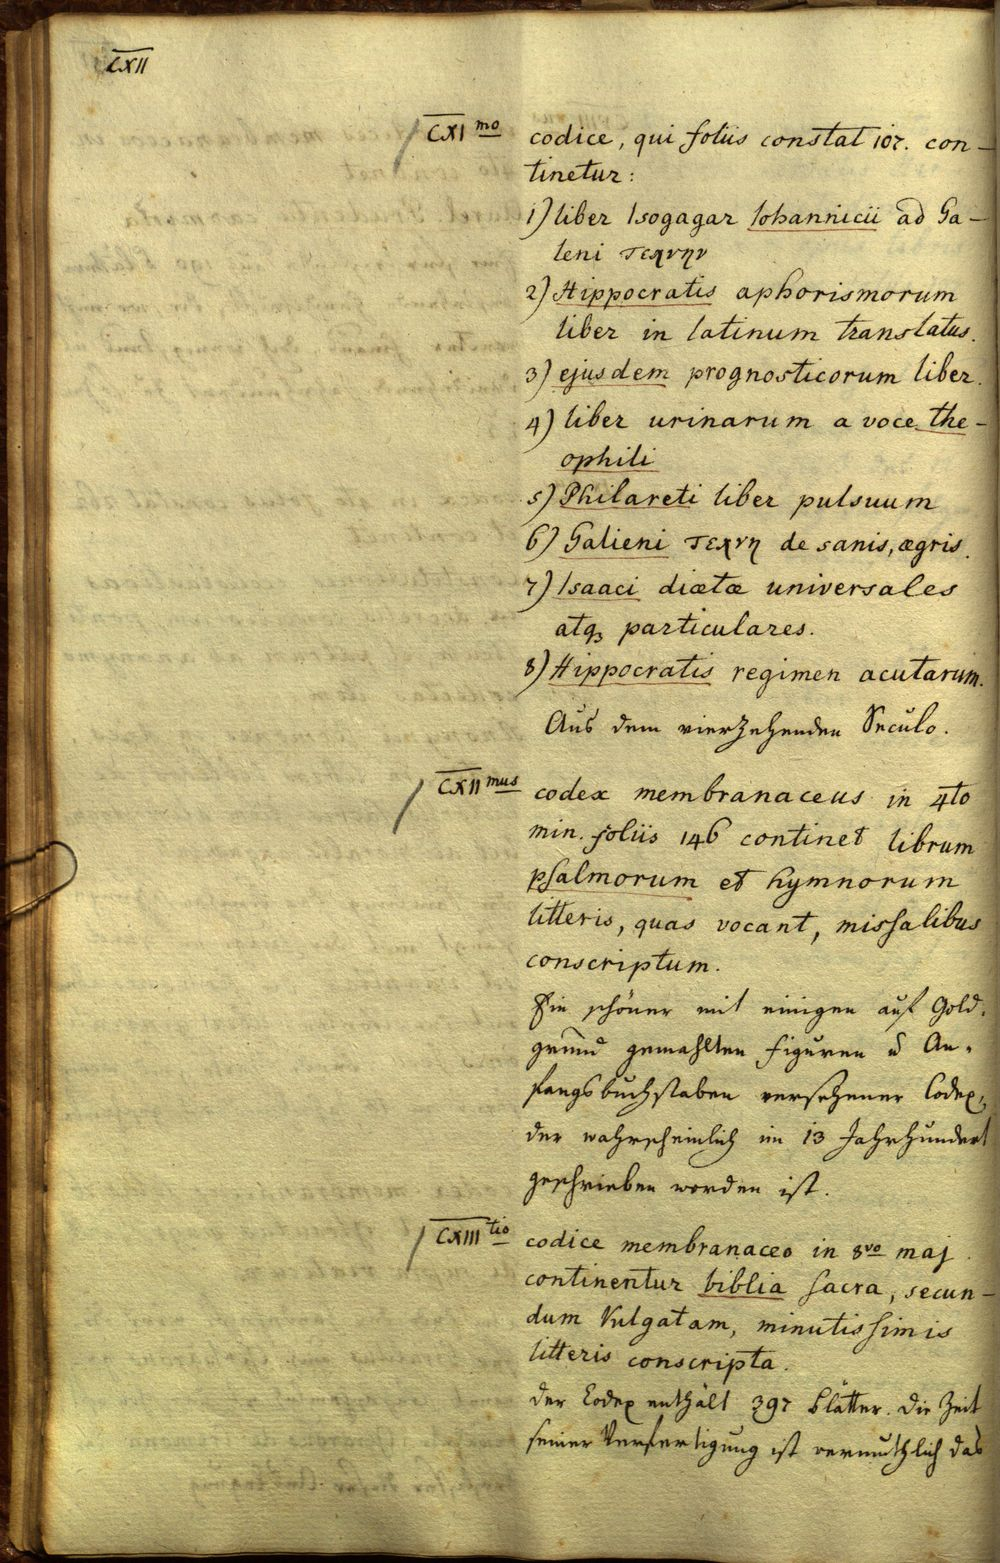 CXII
CXI mo codice, qui foliis constat 107. con-
tinetur:
1) liber Isogagar Iohannicii ad Ga-
leni τεχνην
2) Hippocratis aphorismorum
liber in latinum translatus.
3) ejusdem prognosticorum liber.
4) liber urinarum a voce the-
ophili
5) Philareti liber pulsuum
6) Galieni τεχνη de sanis, ægris.
7) Isaaci diætæ universales
atqꝫ particulares.
8) Hippocratis regimen acutarum.
Aus dem vierzehenden Seculo.
CXII mus codex membranaceus in 4to
min. foliis 146 continet librum
psalmorum et hymnorum
litteris, quas vocant, missalibus
conscriptum.
Ein schöner mit einigen auf Gold-
grund gemahlten Figuren u An-
fangsbuchstaben versehener Codex,
der wahrscheinlich im 13 Jahrhundert
geschrieben worden ist.
CXIII tio codice membranaceo in 8vo maj
continentur biblia sacra, secun-
dum Vulgatam, minutissimis
litteris conscripta.
der Codex enthält 397 Blätter. Die Zeit
seiner Verfertigung ist vermuthlich das